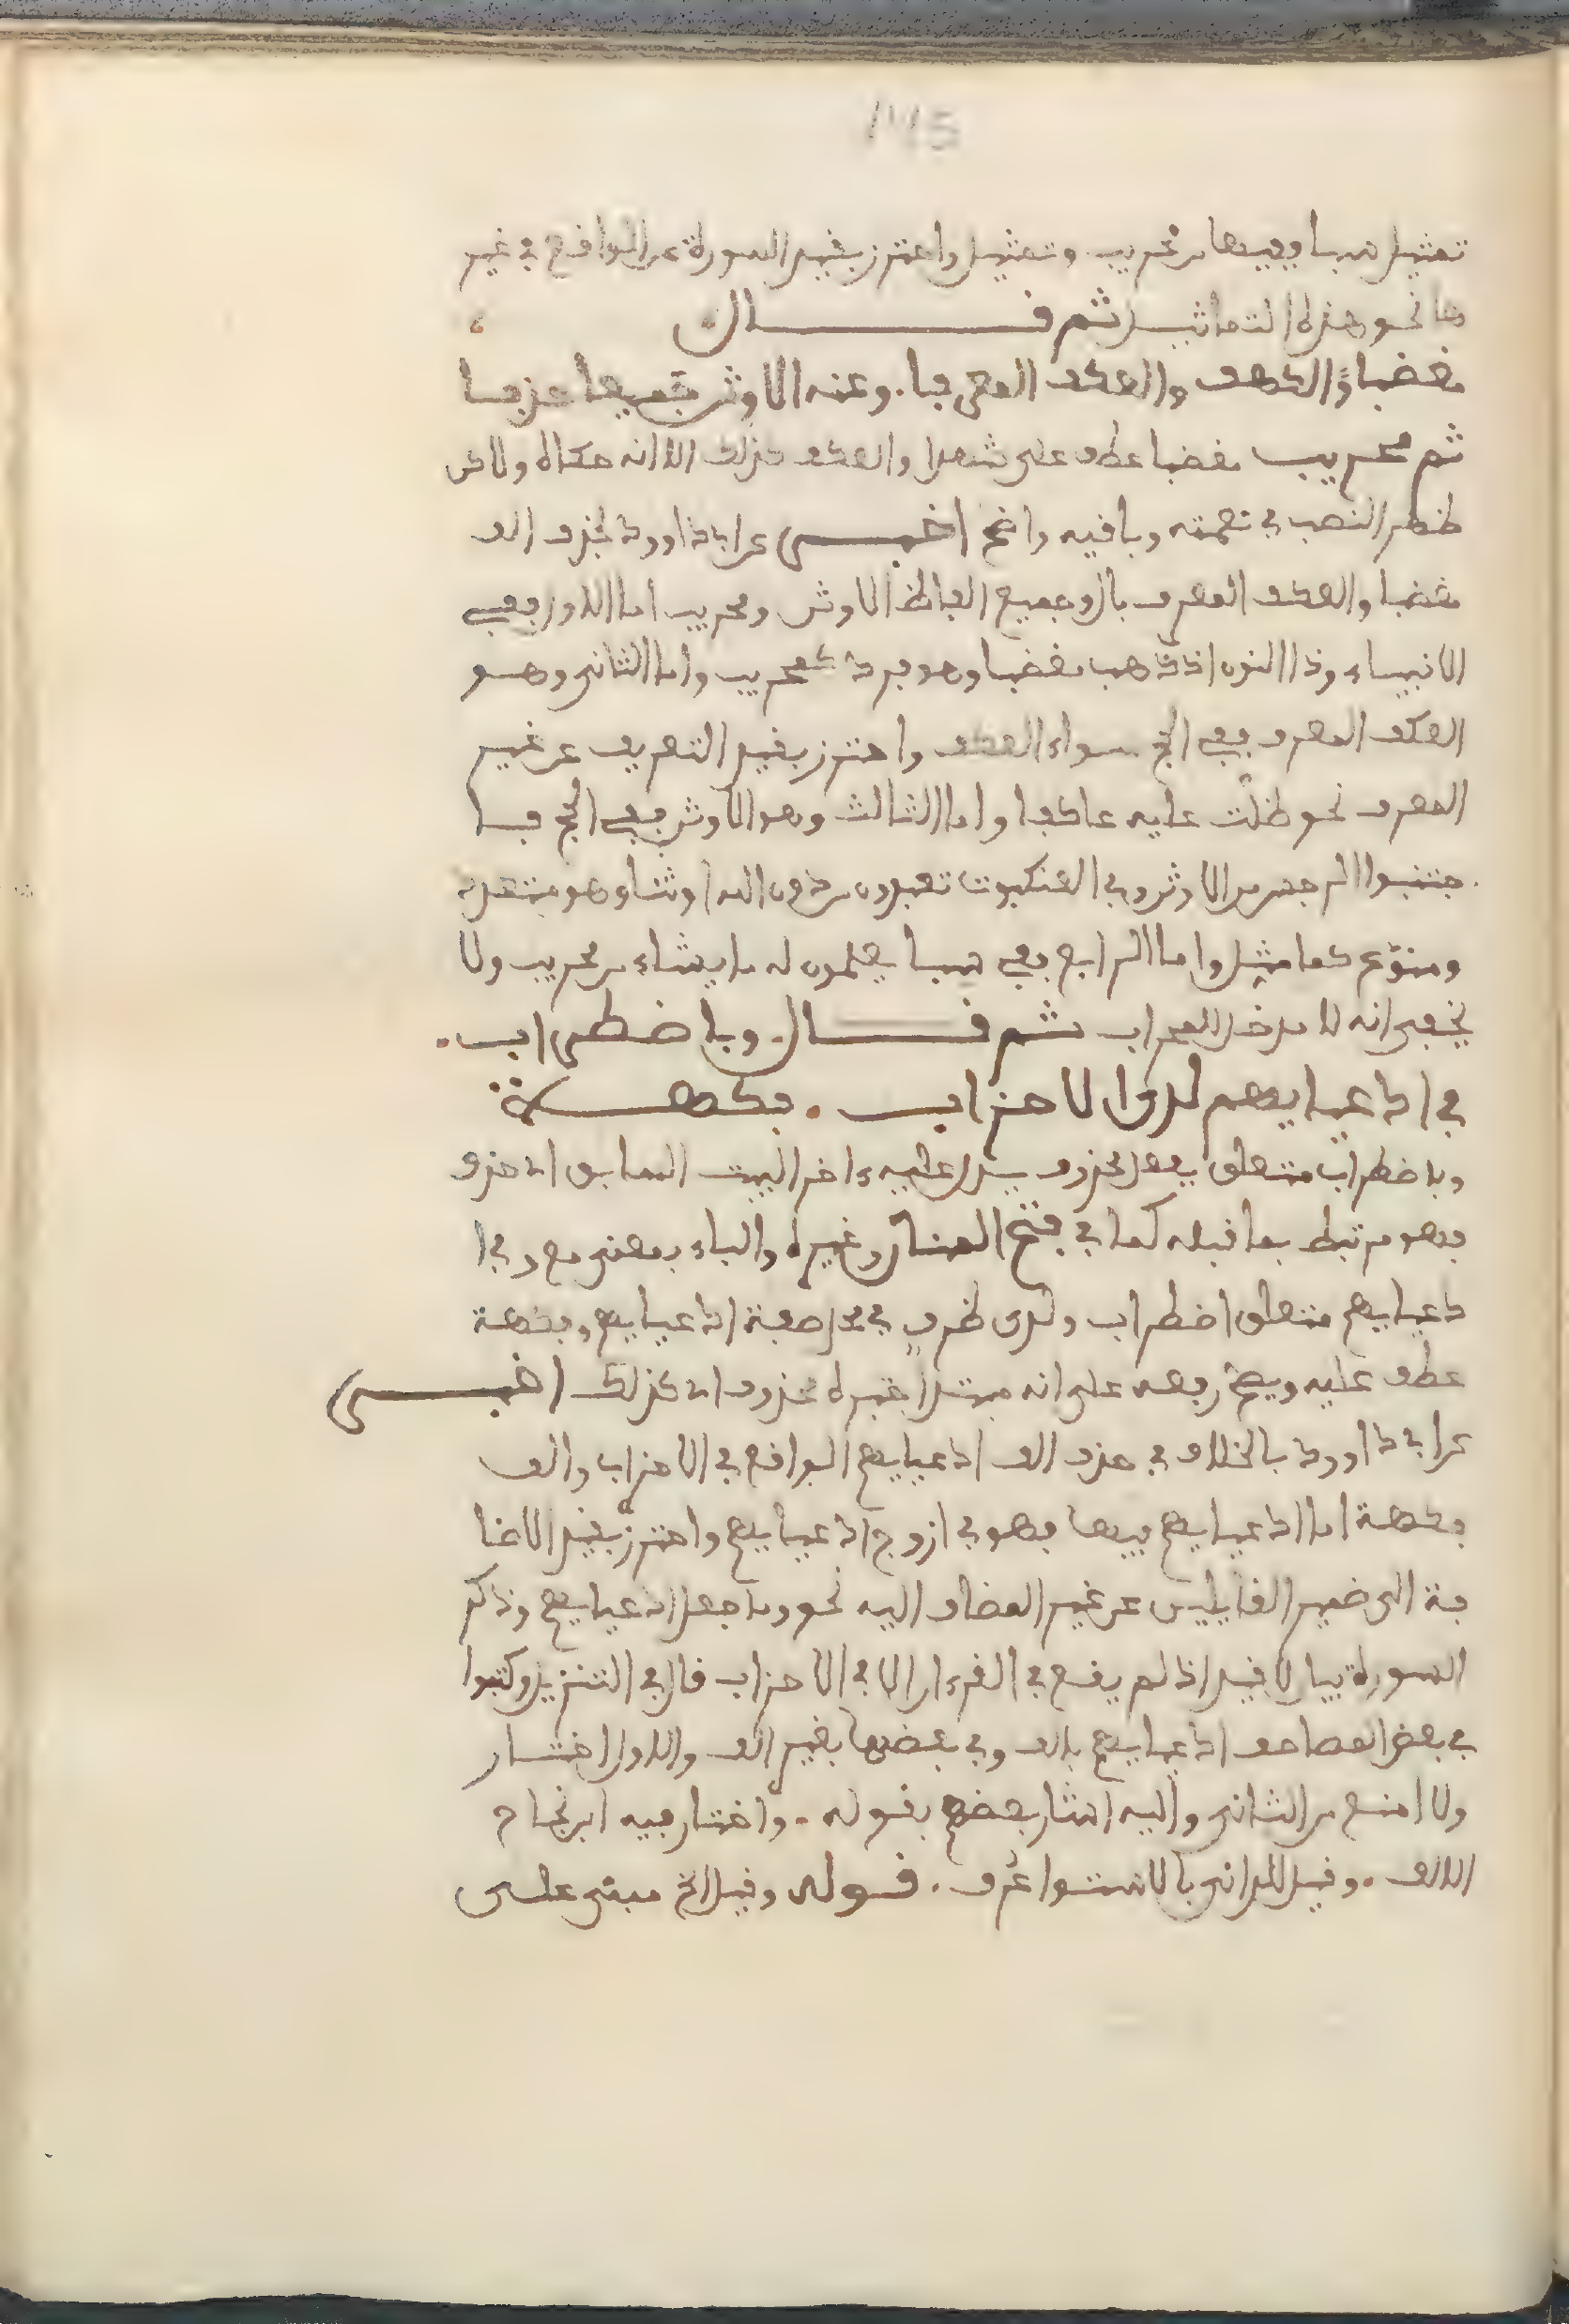 145
تمثيل سبا وفيها من محريب وتمثيل واحترز بقيد السورة عن الواقع في غير
ها نحو هذه التماثيل ثم قال
مغضبا والعكف المعرفا . وعنه الاوثن جميعا حذفا
ثم محريب مغضبا عطف على شهدا والعكف كذلك الا انه حكاه ولاكن
ظهر النصب في نعته وباقيه واضح اخبر عن ابي داوود بحذف الف
مغضبا والعكف المعرف بال وجميع الفاظ الاوثن ومحريب اما الاول ففي
الانبياء وذا النون اذ ذهب مغضبا وهو فرد كمحريب واما الثاني وهو
العكف المعرف ففي الحج سواء العكف واحترز بقيد التعريف عن غير
المعرف نحو ظلت عليه عاكفا واما الثالث وهو الاوثن ففي الحج فا
جتنبوا الرجس من الاوثن وفي العنكبوت تعبدون من دون الله اوثنا وهو متعدد
ومنوع كما مثل واما الرابع ففي سبا يعملون له ما يشاء من محريب ولا
يخفى انه لا يدخل المحراب ثم قال . وباضطراب .
في ادعيايهم لدى الاحزاب . فكهة
وباضطراب متعلق بفعل محذوف يدل عليه ءاخر البيت السابق اي حذف
فهو مرتبط بما قبله كما في فتح المنان وغيره والباء بمعنى مع وفي ا
دعيايهم متعلق اضطراب ولدى ظرف في محل صفة ادعيايهم وفكهة
عطف عليه ويصح رفعه على انه مبتدا خبره محذوف اي كذلك اخبر
عن ابي داوود بالخلاف في حذف الف ادعيايهم الواقع في الاحزاب والف
فكهة اما ادعيايهم فيها فهو في ازوج ادعيايهم واحترز بقيد الاضا
فة الى ضمير الغايبين عن غير المضاف اليه نحو وما جعل ادعياءكم وذكر
السورة بيان لا قيد اذ لم يقع في القرءان الا في الاحزاب قال في التنزيل وكتبوا
في بعض المصاحف ادعيايهم بالف وفي بعضها بغير الف والاول اختار
ولا امنع من الثاني واليه اشار بعضهم بقوله . واختار فيه ابن نجاح
الالف . وقيل للداني بالاستوا عرف . قوله وقيل الخ مبني على